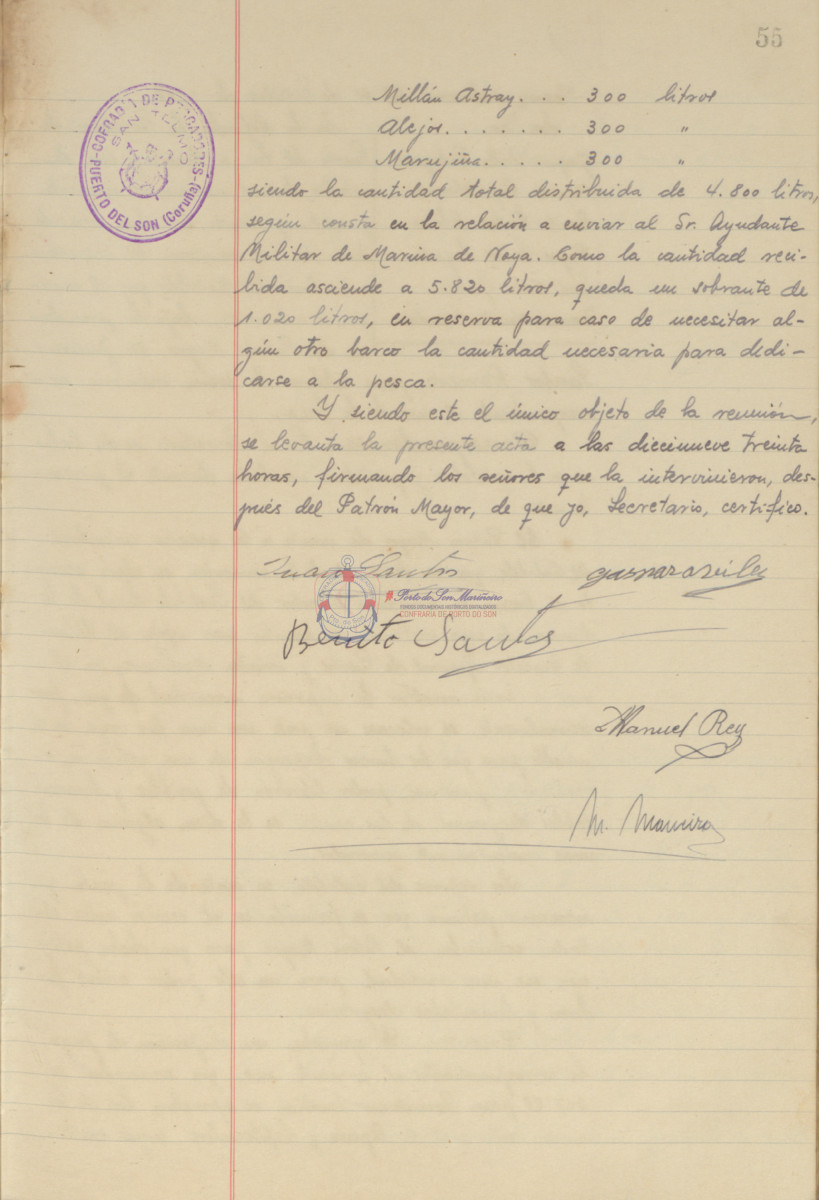 55
Millán Astray. . . 300 litros
Alejos. . . . . . . 300 "
Marujiña. . . . . 300 "
COFRADIA DE PESCADORES
SAN TELMO
PUERTO DEL SON (Coruña)
siendo la cantidad total distribuida de 4.800 litros,
según consta en la relación a enviar al Sr. Ayudante
Militar de Marina de Noya. Como la cantidad reci-
bida asciende a 5.820 litros, queda un sobrante de
1.020 litros, en reserva para caso de necesitar al-
gún otro barco la cantidad necesaria para dedi-
carse a la pesca.
Y siendo este el único objeto de la reunión,
se levanta la presente acta a las diecinueve treinta
horas, firmando los señores que la intervinieron, des-
pués del Patrón Mayor, de que yo, Secretario, certifico.
Juan Santos
gaspar avila
Porto do Son Mariñeiro
FONDOS DOCUMENTAIS HISTÓRICOS DIXITALIZADOS
CONFRARÍA DE PORTO DO SON
Benito Santos
Manuel Rey
M. Maneiro